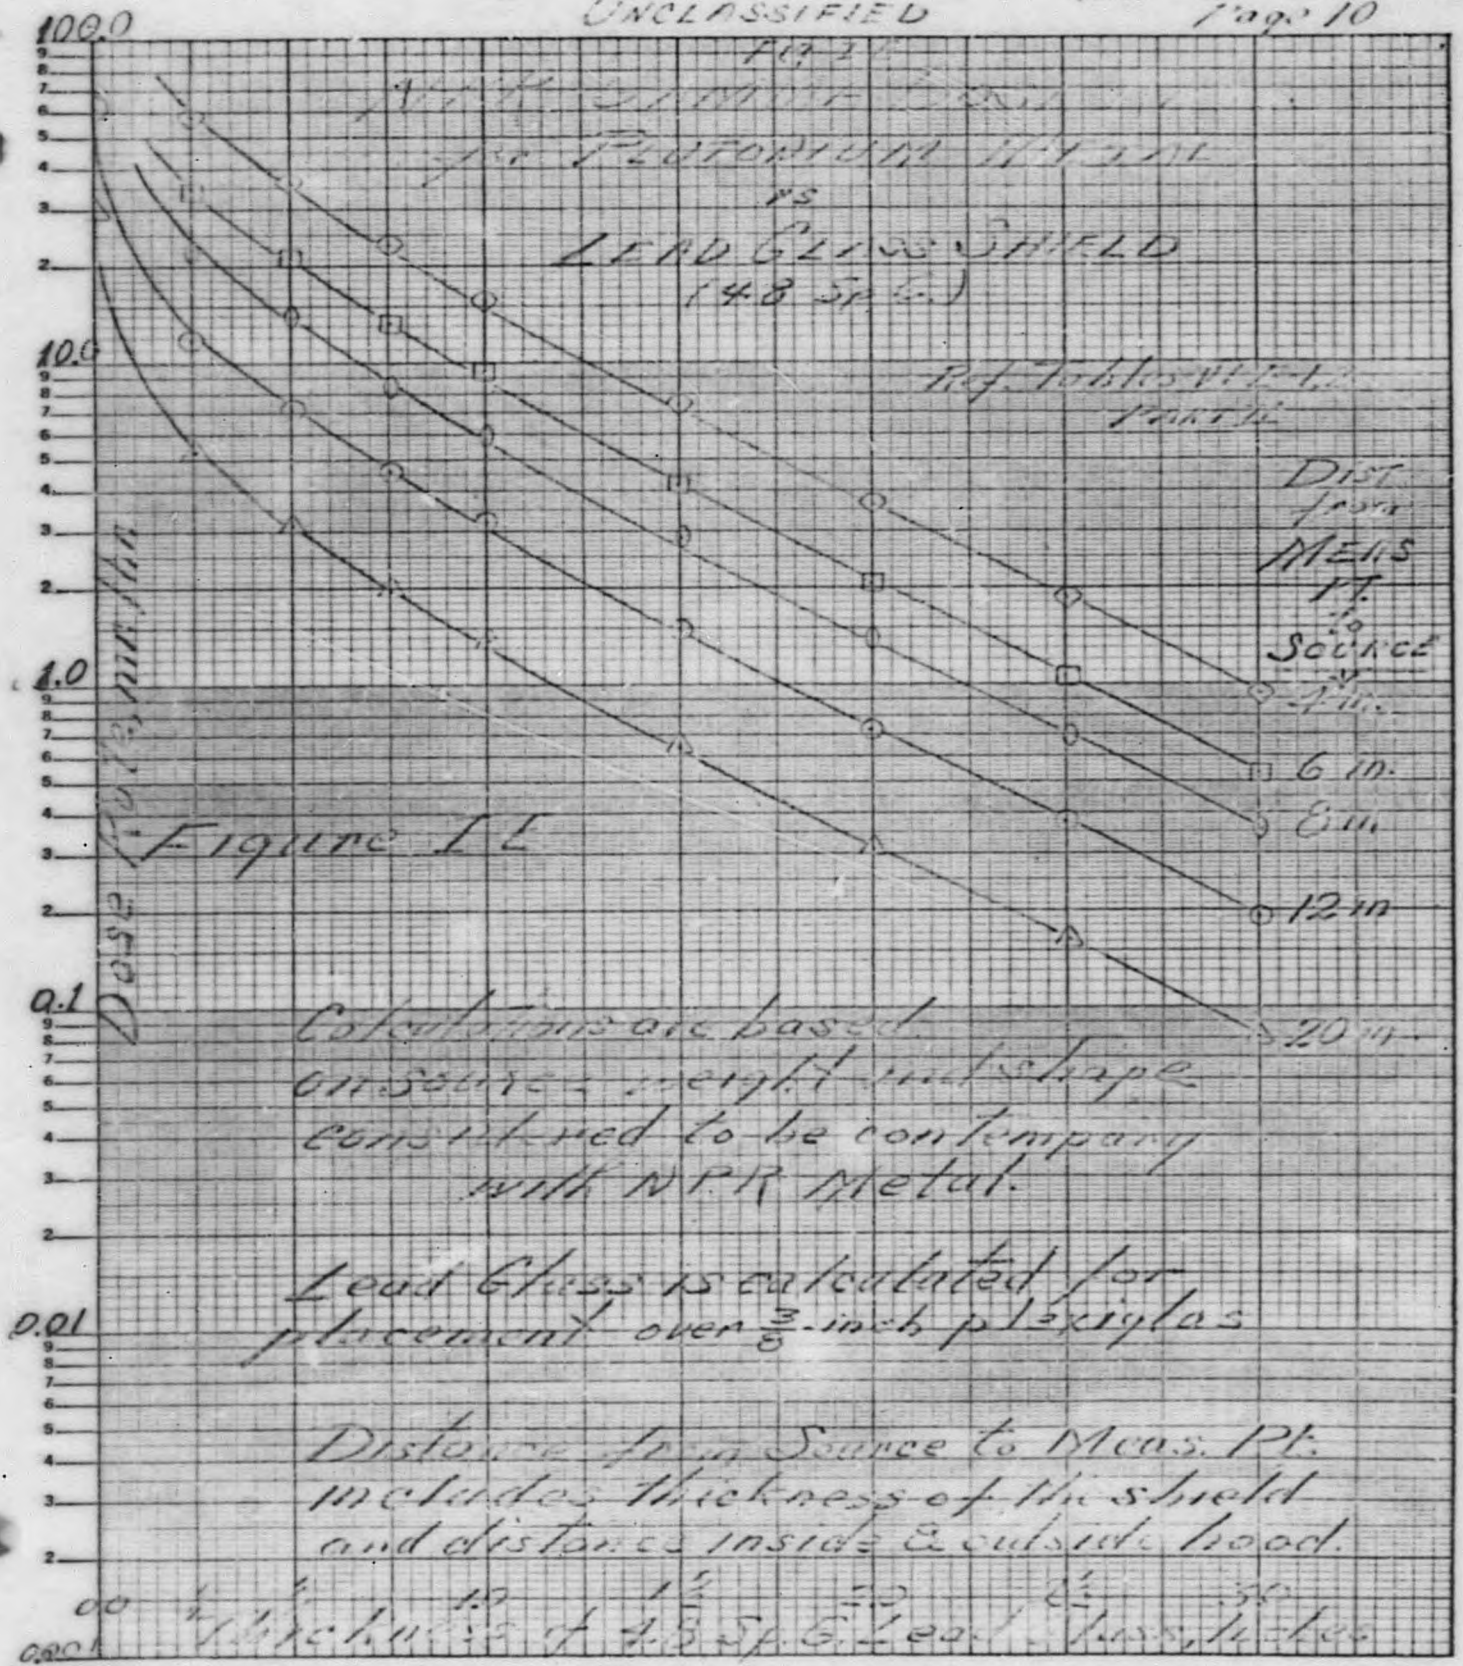 UNCLASSIFIED
Page 10
for PLUTONIUM METAL
vs
LEAD GLASS SHIELD
(4.8 Sp. G.)
Ref. Tables
PART II
DIST.
from
MEAS
PT.
to
SOURCE
4 in.
6 in.
8 in.
12 in
20 in
100.0
9
8
7
6
5
4
3
2
10.0
9
8
7
6
5
4
3
2
1.0
9
8
7
6
5
4
3
2
0.1
9
8
7
6
5
4
3
2
0.01
9
8
7
6
5
4
3
2
0.001
Dose Rate, mr/hr
Figure I E
Calculations are based
on source weight and shape
considered to be contempary
with NPR Metal.
Lead Glass is calculated for
placement over 3/8-inch plexiglas
Distance from Source to Meas. Pt.
includes thickness of the shield
and distance inside & outside hood.
0.0 1.0 1½ 2.0 2½ 3.0
Thickness of 4.8 Sp. G. Lead Glass, inches